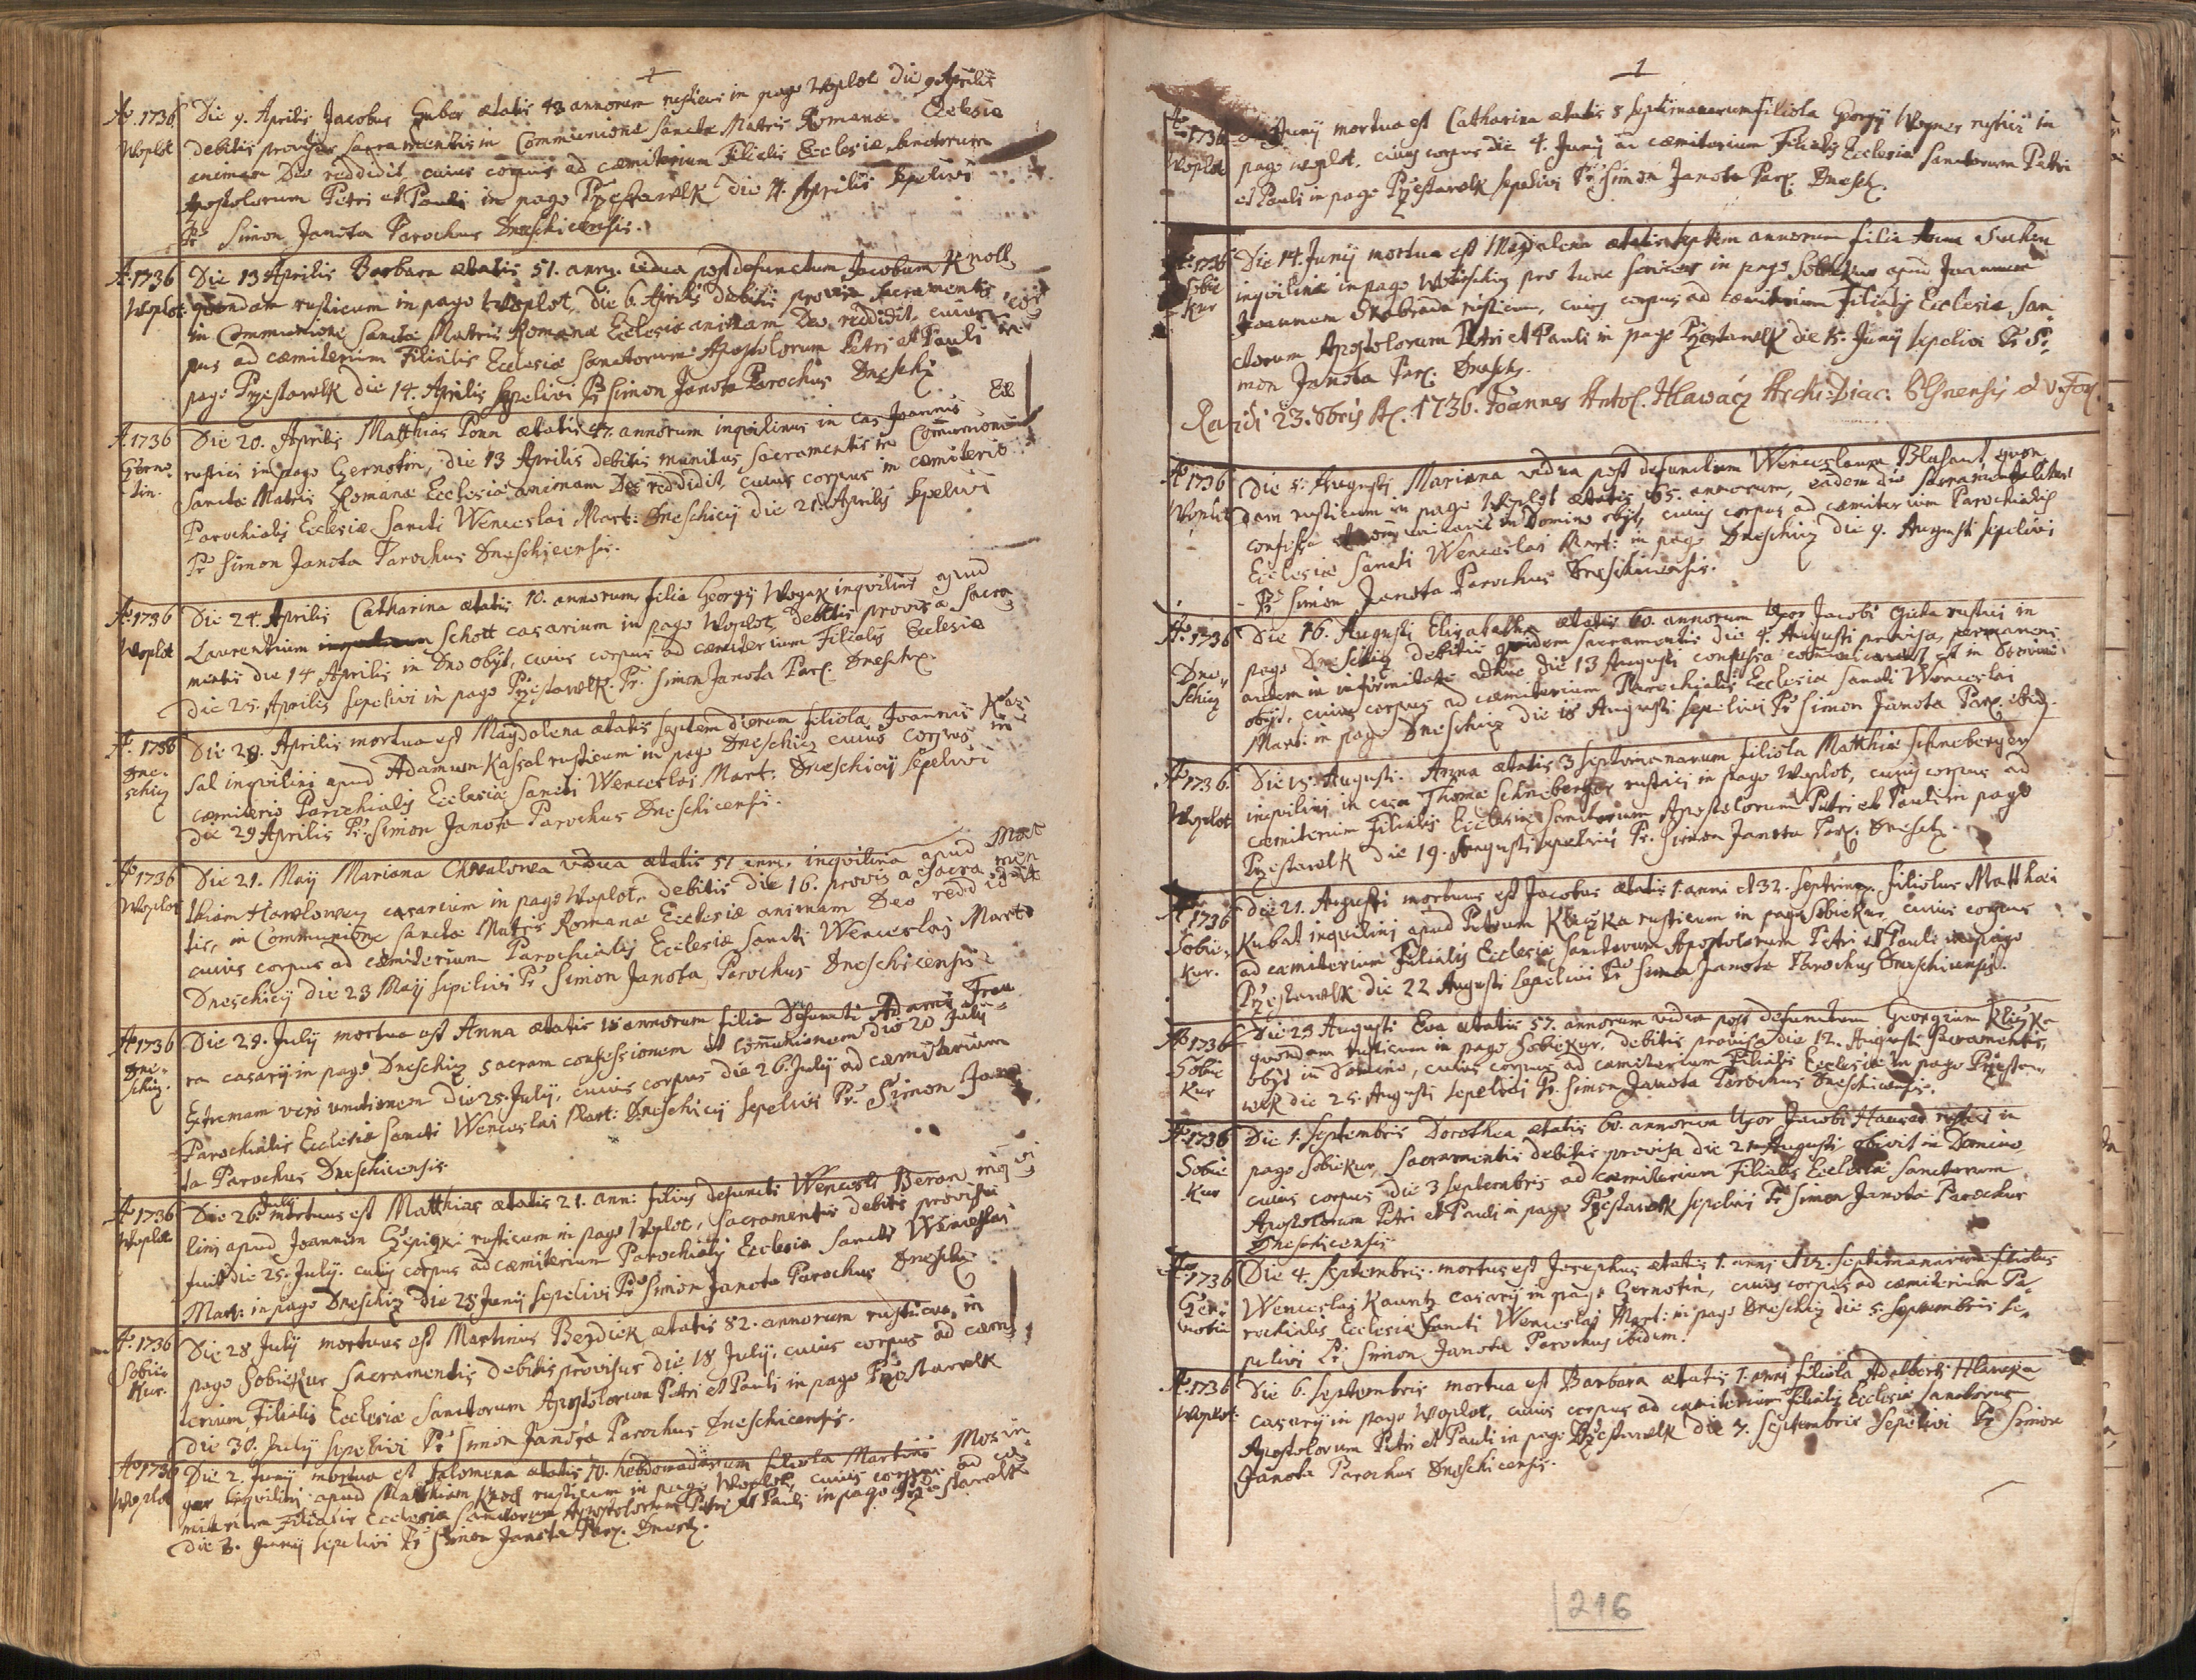 Aō 1736 Die 9. Aprilis Jacobus Gruber ætatis 43 annorum rusticus in pago Woplot die 9 Aprilis
Woplot debitis provisus sacramentis in Communione Sanctæ Matris Romanæ Eclesiæ
animam Deo reddidit, cuius corpus ad cæmiterium Filialis Ecclesiæ Sanctorum
Apostolorum Petri et Pauli in pago Przestawlk die 11. Aprilis Sepelivi
Pr Simon Janota Parochus Dneschicensis.
A. 1736 Die 13 Aprilis Barbara ætatis 51. anno. vidua post defunctum Jacobum Knoll
Woplot quondam rusticum in pago Woplot, die 6. Aprilis debitis provisa Sacramentis
in Communione Sanctæ Matris Romanæ Ecclesiæ animam Deo reddidit, cuius cor
pus ad cæmiterium Filialis Ecclesiæ Sanctorum Apostolorum Petri et Pauli in
pago Przestawlk die 14. Aprilis Sepelivi Pr Simon Janota Parochus Dnesch:
A. 1736 Die 20. Aprilis Matthias Ponn ætatis 47. annorum inquilinus in cas Joannis
Czerno- rustici in pago Czernotin, die 13 Aprilis debitis munitus sacramentis in Communione
tin. Sanctæ Matris Romanæ Ecclesiæ animam Deo reddidit, cuius corpus in cæmiterio
Parochialis Ecclesiæ Sancti Wenceslai Mart: Dneschicij die 21. Aprilis Sepelivi
Pr Simon Janota Parochus Dneschicensis.
Aō 1736 Die 24. Aprilis Catharina ætatis 10. annorum filia Georgij Woyak inquilini apud
Woplot Laurentium Schott casarium in pago Woplot, debitis provisa Sacra
mentis die 14 Aprilis in Dno obijt, cuius corpus ad cæmiterium Filialis Ecclesiæ
die 25. Aprilis sepelivi in pago Przestawlk. Pr. Simon Janota Par. Dnesch.
A. 1736 Die 28. Aprilis mortua est Magdalena ætatis septem dierum filiola Joannis Kas
Dne- sal inquilini apud Adamum Kassal rusticum in pago Dneschicz cuius corpus in
schicz cæmiterio Parochialis Ecclesiæ Sancti Wenceslai Mart: Dneschicij Sepelivi
die 29 Aprilis Pr. Simon Janota Parochus Dneschicensis.
Aō 1736 Die 21. Maij Mariana Chwalowa vidua ætatis 51 ann. inquilina apud Mat
Woplot thiam Hawlowecz casarium in pago Woplot, debitis die 16. provisa Sacramen
tis, in Communione Sanctæ Matris Romanæ Ecclesiæ animam Deo reddidit
cuius corpus ad cæmiterium Parochialis Ecclesiæ Sancti Wenceslaj Mart:
Dneschicij die 23 Maij sepelivi Pr Simon Janota Parochus Dneschicensis
Aō 1736 Die 29. July mortua est Anna ætatis 18 annorum filia Defuncti Adami
Dne- casarij in pago Dneschicz sacram confessionem et communionem die 20 July
schicz. Extremam vero unctionem die 25. July, cuius corpus die 26. July ad cæmiterium
Parochialis Ecclesiæ Sancti Wenceslai Mart: Dneschicij sepelivi Pr. Simon Jano
ta Parochus Dneschicensis
Aō 1736 Die 26. July mortuus est Matthias ætatis 21. ann: filius defuncti Wencesli Beran inqvi
Woplot linj apud Joannem rusticum in pago Woplot, sacramentis debitis provisus
fuit die 25. July. cuius corpus ad cæmiterium Parochialis Ecclesiæ Sancti Wenceslai
Mart: in pago Dneschicz die 28 Junij sepelivi Pr Simon Janota Parochus Dnesch:
A. 1736 Die 28 July mortuus est Martinus Bezdiek ætatis 82. annorum rusticus in
Sobie- pago Sobiekur Sacramentis debitis provisus die 18 July, cuius corpus ad cæmi
kur. terium Filialis Ecclesiæ Sanctorum Apostolorum Petri et Pauli in pago Przestawlk
die 30. July sepelivi Pr Simon Janota Parochus Dneschicensis.
Aō 1736 Die 2. Junij mortua est Salomena ætatis 10. hebdomadarum filiola Martini
Woplot inquilini apud Matthiam rusticum in pago Woplot, cuius corpus ad cæ
miterium Filialis Ecclesiæ Sanctorum Apostolorum Petri et Pauli in pago Przestawlk
die 3. Junij sepelivi Pr Simon Janota Par. Dnesch.
Aō 1736 Junij mortua est Catharina ætatis 5 septimanarum filiola Georgij Wogner rustici in
Woplot pago Woplot, cuius corpus die 4. Junij ad cæmiterium Filialis Ecclesiæ Sanctorum Petri
et Pauli in pago Przestawlk sepelivi Pr Simon Janota Par. Dnesch.
Aō 1736 Die 14. Junij mortua est Magdalena ætatis septem annorum filia Annæ
Sobie inqvilinæ in pago pro tunc in pago Sobiekur apud Joannem
kur Joannem Skabrada rusticum, cuius corpus ad cæmiterium Filialis Ecclesiæ San
ctorum Apostolorum Petri et Pauli in pago Przestawlk die 15. Junij sepelivi Pr Si
mon Janota Par. Dnesch.
23. 8bris A. 1736. Joannes Anto. Hlawacz Archi-Diac:
Aō 1736 Die 5. Augusti Mariana vidua post defunctum Wenceslaum Blahaut quon
Woplot dam rusticum in pago Woplot ætatis 65. annorum, eadem die sacramentaliter
confessa in Domino obijt, cuius corpus ad cæmiterium Parochialis
Ecclesiæ Sancti Wenceslai Mart: in pago Dneschicz die 9. Augusti sepelivi
Pr Simon Janota Parochus Dneschicensis.
Aō 1736 Die 16. Augusti Elisabetha ætatis 60. annorum Uxor Jacobi rustici in
Dne- pago Dneschicz debitis quidem sacramentis die 4. Augusti provisa, permanens
schicz autem in infirmitate adhuc die 13 Augusti confessa est in Domino
obijt, cuius corpus ad cæmiterium Parochialis Ecclesiæ Sancti Wenceslai
Mart: in pago Dneschicz die 18 Augusti sepelivi Pr Simon Janota Par. ibid.
Aō 1736. Die 15. Augusti. Anna ætatis 3 septimanarum filiola Matthiæ Schneberger
Woplot inquilini in casa Thomæ Schneberger rustici in pago Woplot, cuius corpus ad
cæmiterium Filialis Ecclesiæ Sanctorum Apostolorum Petri et Pauli in pago
Przestawlk die 19. Augusti sepelivi Pr. Simon Janota Par. Dnesch.
1736 Die 21. Augusti mortuus est Jacobus ætatis 1. anni et 32. Septima. filiolus Matthæi
Sobie- Kubat inquilini apud Petrum rusticum in pago Sobiekur, cuius corpus
kur. ad cæmiterium Filialis Ecclesiæ Sanctorum Apostolorum Petri et Pauli in pago
Przestawlk die 22 Augusti Sepelivi Pr Simon Janota Parochus Dneschicensis.
Aō 1736 Die 23 Augusti Eva ætatis 57. annorum vidua post defunctum Georgium
Sobie quondam rusticum in pago Sobiekur, debitis provisa die 12. Augusti Sacramentis,
kur obijt in Domino, cuius corpus ad cæmiterium Filialis Ecclesiæ in pago Przesta-
wlk die 25. Augusti sepelivi Pr. Simon Janota Parochus Dneschicensis.
Aō 1736 Die 1. Septembris Dorothea ætatis 60. annorum Uxor Jacobi Hauser rustici in
Sobie pago Sobiekur, Sacramentis debitis provisa die 21 Augusti obivit in Domino
kur cuius corpus die 3 septembris ad cæmiterium Filialis Ecclesiæ Sanctorum
Apostolorum Petri et Pauli in pago Przestawlk sepelivi Pr Simon Janota Parochus
Dneschicensis
Aō 1736 Die 4. Septembris. mortuus est Josephus ætatis 1. anni et 12. septimanarum filiolus
Czer- Wenceslaj Kauntz casarij in pago Czernotin, cuius corpus ad cæmiterium Pa-
notin rochialis Ecclesiæ Sancti Wenceslaj Mart: in pago Dneschicz die 5. Septembris se-
pelivi Pr Simon Janota Parochus ibidem.
Aō 1736 Die 6. Septembris mortua est Barbara ætatis 1. anni filiola Adalberti
Woplot. casarij in pago Woplot, cuius corpus ad cæmiterium Filialis Ecclesiæ Sanctorum
Apostolorum Petri et Pauli in pago Przestawlk die 7. Septembris Sepelivi Pr Simon
Janota Parochus Dneschicensis.
216